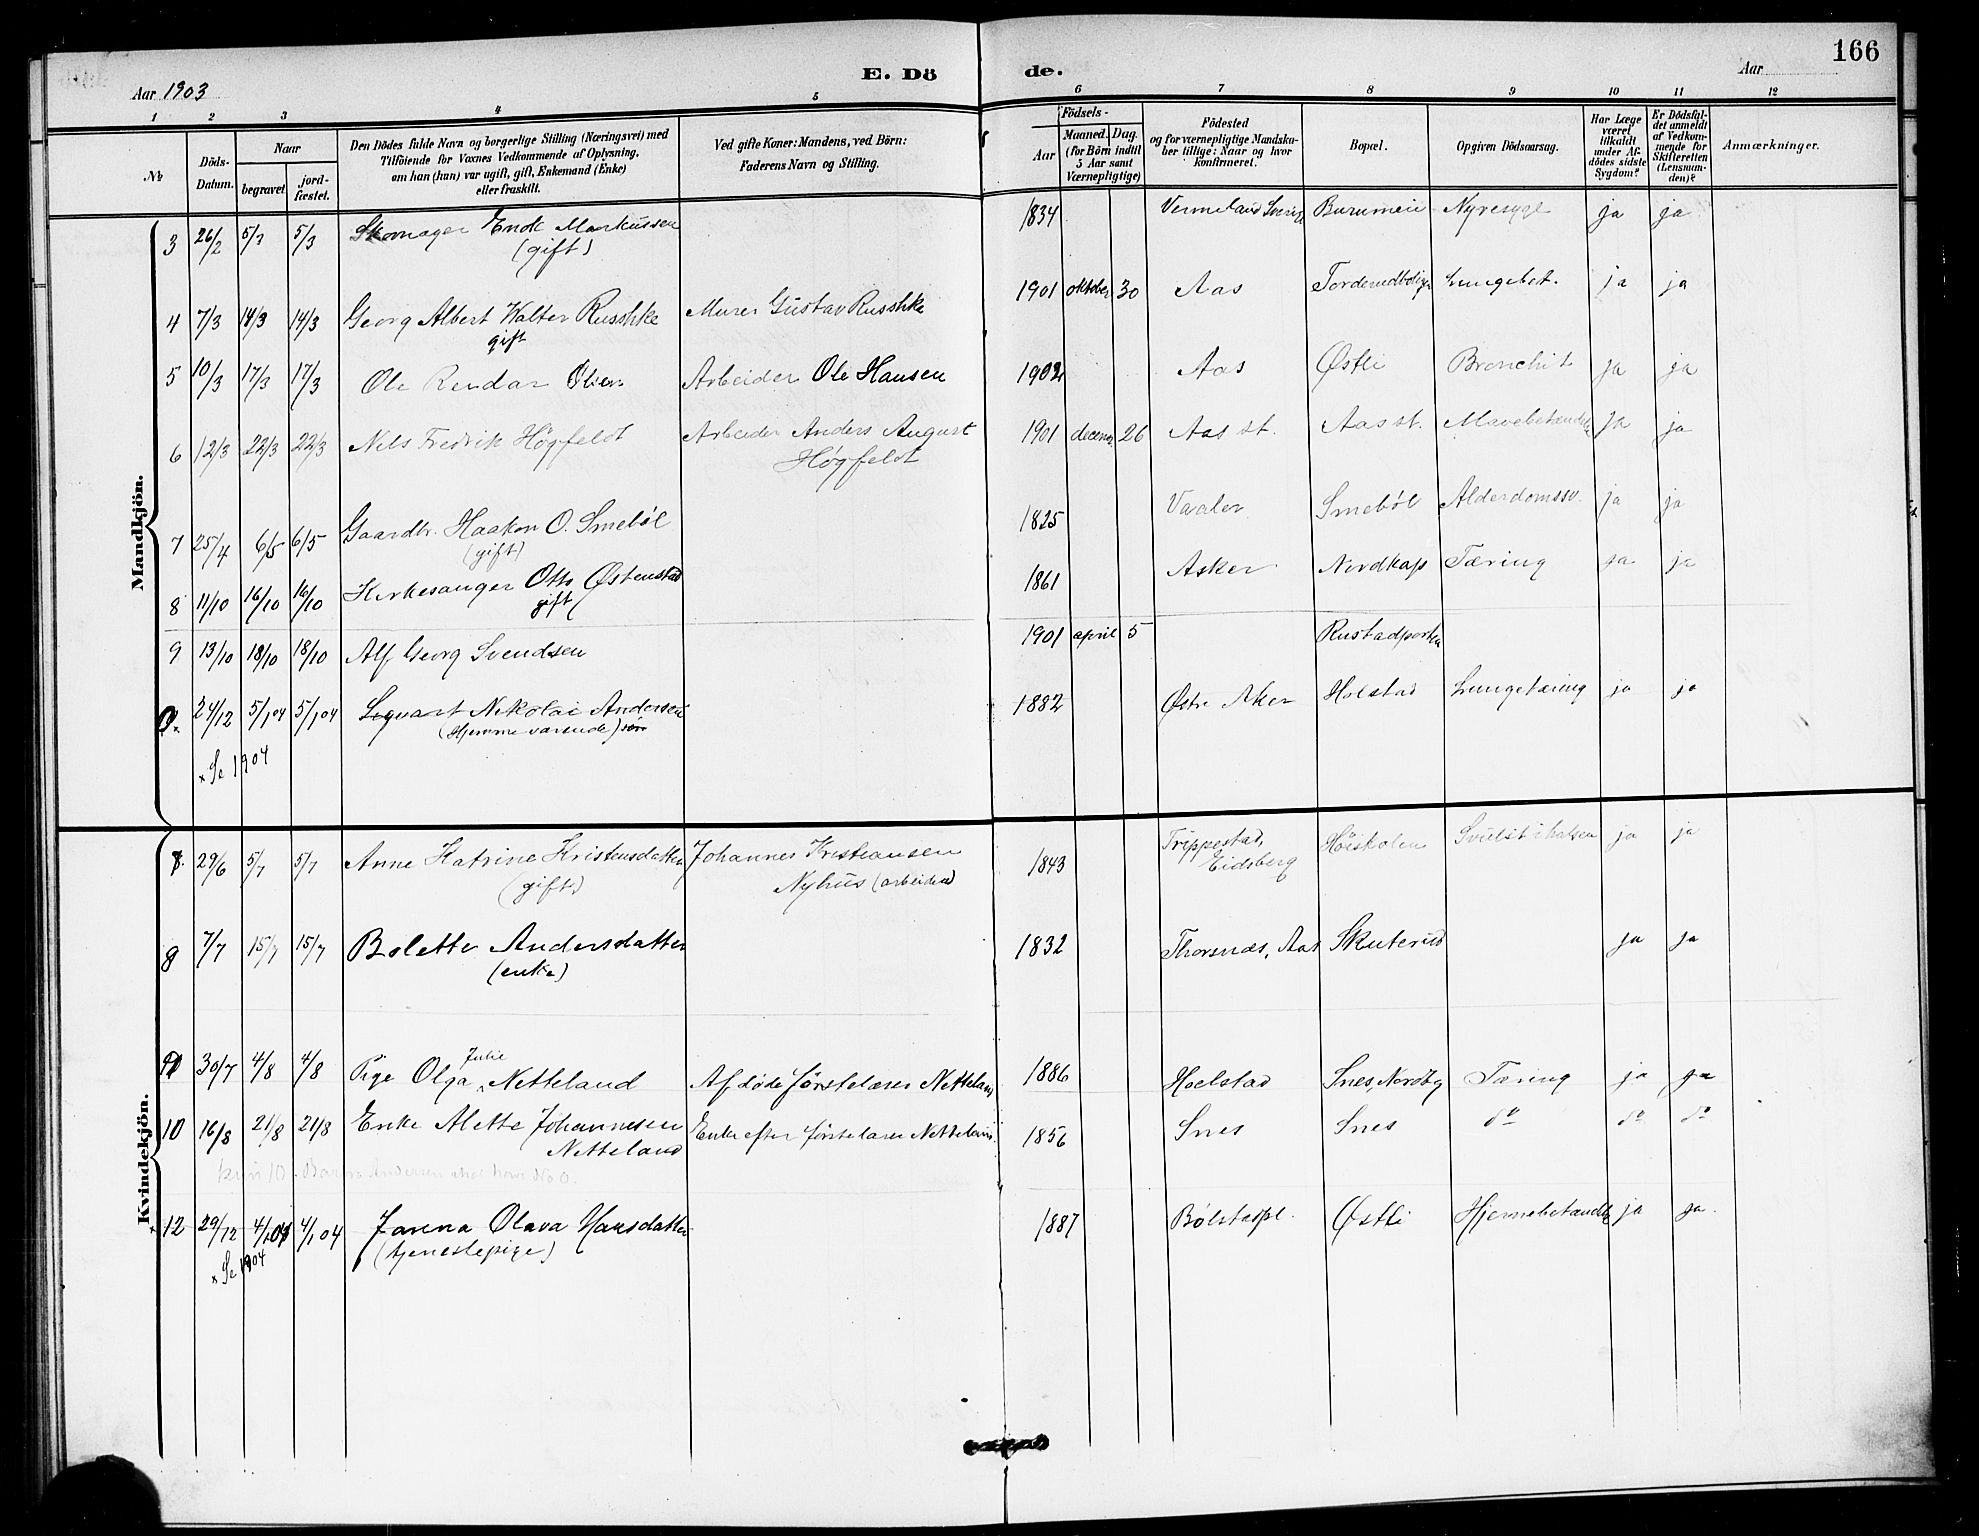 166
Aar 1903
E. Dö
de.
Aar
1 2 3 4 5 6 7 8 9 10 11 12
№
Döds-
Datum.
Naar
begravet
jord-
fæstet.
Den Dödes fulde Navn og borgerlige Stilling (Næringsvei) med
Tilföiende for Voxnes Vedkommende af Oplysning,
om han (hun) var ugift, gift, Enkemand (Enke)
eller fraskilt.
Ved gifte Koner: Mandens, ved Börn:
Faderens Navn og Stilling.
Födsels-
Aar
Maaned. Dag.
(for Börn indtil
5 Aar samt
Værnepligtige)
Födested
og for værnepligtige Mandska-
ber tillige: Naar og hvor
konfirmeret.
Bopæl.
Opgiven Dödsaarsag.
Har Læge
været
tilkaldt
under Af-
dödes sidste
Sygdom?
Er Dödsfal-
det anmeldt
af Vedkom-
mende for
Skifteretten
(Lensman-
den)?
Anmærkninger.
Mandkjön.
3 26/2 5/3 5/3 Skomager Endt Markussen 1834 Vermeland Sverige Nyresyge ja ja
(gift)
4 7/3 14/3 14/3 Georg Albert Walter Russhke Murer Gustav Russhke 1901 oktober 30 Aas Lungebet. ja ja
gift
5 10/3 17/3 17/3 Ole Reidar Olsen Arbeider Ole Hansen 1902 Aas Østli Bronchit ja ja
6 12/3 22/3 22/3 Nels Fredrik Högfeldt Arbeider Anders August 1901 decem. 26 Aas st. Aas st. Mavebetændelse ja ja
Høgfeldt
7 25/4 6/5 6/5 Gaardbr. Haakon O. Smebøl 1825 Vaaler Smebøl Alderdomssv. ja ja
(gift)
8 11/10 16/10 16/10 Kirkesanger Otto Østenstad 1861 Asker Nordkap Tæring ja ja
gift
9 13/10 18/10 18/10 Alf Georg Svendsen 1901 april 5 Rustadporten
24/12 5/1 04 5/1 04 Nikolai Andersen 1882 Østre Aker Holstad Lungetæring ja ja
(Hjemmeværende) søn
x Se 1904
Kvindekjön.
7. 29/6 5/7 5/7 Anne Katrine Kristensdatter Johannes Kristiansen 1843 Trippestad, Høiskolen Svulst i halsen ja ja
(gift) Nyhus (arbeider) Eidsberg
8 7/7 15/7 15/7 Bolette Andersdatter 1832 Thorsnes, Aas Skuterud ja ja
(enke)
9 30/7 4/8 4/8 Pige Olga Julie Netteland Afdøde førstelærer Netteland 1886 Holstad Snes, Nordby Tæring ja ja
10 16/8 21/8 21/8 Enke Alette Johannesen Enke efter førstelærer Netteland 1856 Snes Snes do do do
Netteland
x 12 29/12 4/1 04 4/1 04 Janna Olava Hansdatter 1887 Bølstadpl. Østli Hjernebetændelse ja ja.
(tjenestepige)
x Se 1904